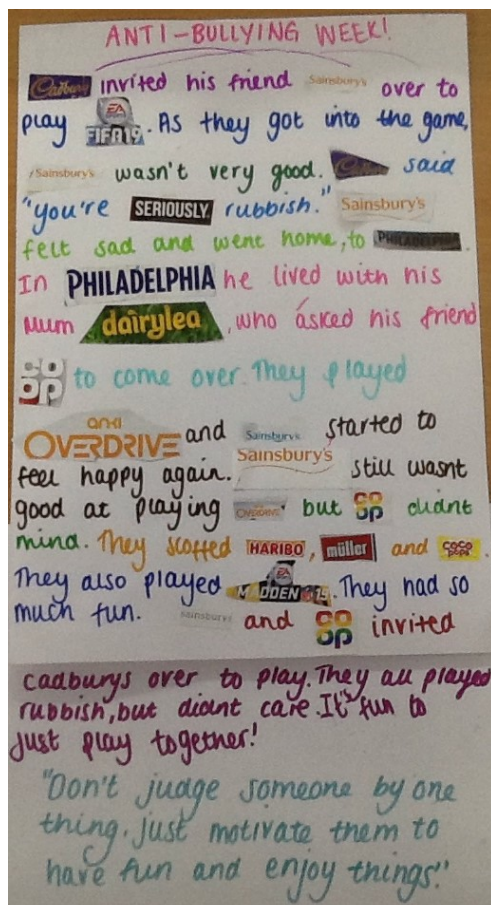 ANTI-BULLYING WEEK!
Cadbury invited his friend Sainsbury's over to
play EA SPORTS FIFA19. As they got into the game,
Sainsbury's wasn't very good. Cadbury said
"you're SERIOUSLY rubbish." Sainsbury's
felt sad and went home, to PHILADELPHIA.
In PHILADELPHIA he lived with his
Mum dairylea, who asked his friend
co op to come over. They played
anki OVERDRIVE and Sainsbury's started to
feel happy again. Sainsbury's still wasnt
good at playing OVERDRIVE but co op didnt
mind. They scoffed HARIBO, müller and coco pops.
They also played EA MADDEN 19. They had so
much fun. Sainsbury's and co op invited
cadburys over to play. They all played
rubbish, but didnt care. It's fun to
just play together!
"Don't judge someone by one
thing, just motivate them to
have fun and enjoy things."